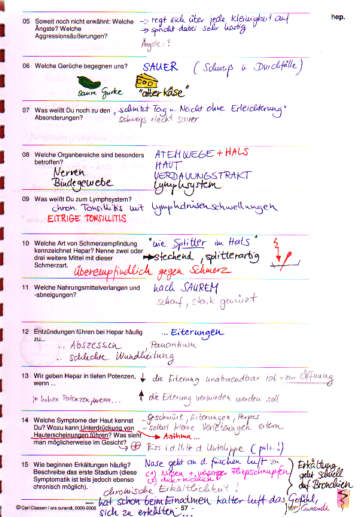 hep.
05 Soweit noch nicht erwähnt: Welche → regt sich über jede Kleinigkeit auf
Ängste? Welche → spricht dabei sehr hastig
Aggressionsäußerungen? Ängste:!
06 Welche Gerüche begegnen uns? SAUER (Schweiß u. Durchfälle)
saure Gurke "alter Käse"
07 Was weißt Du noch zu den „schwitzt Tag u. Nacht ohne Erleichterung“
Absonderungen? Schweiß riecht sauer
08 Welche Organbereiche sind besonders ATEMWEGE + HALS
betroffen? HAUT
Nerven VERDAUUNGSTRAKT
Bindegewebe Lymphsystem
09 Was weißt Du zum Lymphsystem?
chron. Tonsillitis mit Lymphdrüsenschwellungen
EITRIGE TONSILLITIS
10 Welche Art von Schmerzempfindung "wie Splitter im Hals"
kennzeichnet Hepar? Nenne zwei oder → stechend, splitterartig
drei weitere Mittel mit dieser
Schmerzart.
überempfindlich gegen Schmerz
11 Welche Nahrungsmittelverlangen und nach SAUREM
-abneigungen? scharf, stark gewürzt
12 Entzündungen führen bei Hepar häufig ... Eiterungen
zu...
... Abszessen,
... schlechte Wundheilung
13 Wir geben Hepar in tiefen Potenzen, ↓ die Eiterung unabwendbar ist Öffnung
wenn ...
in hohen Potenzen, wenn... ↓ die Eiterung verhindert werden soll
14 Welche Symptome der Haut kennst - Geschwüre, Eiterungen, Herpes
Du? Wozu kann Unterdrückung von - selbst kleine Verletzungen eitern
Hauterscheinungen führen? Was sieht Asthma...
man möglicherweise im Gesicht? Riss i. d. Mitte d. Unterlippe
15 Wie beginnen Erkältungen häufig? Nase geht an d. frischen Luft
Beschreibe das erste Stadium (diese
Symptomatik ist teils jedoch ebenso
chronisch möglich).
Erkältung geht schnell auf Bronchien
chronische Erkältlichkeit!
- hat schon beim Einatmen kalter Luft das Gefühl,
sich zu erkälten...
© Carl Classen / ars curandi, 2000-2005 - 57 -